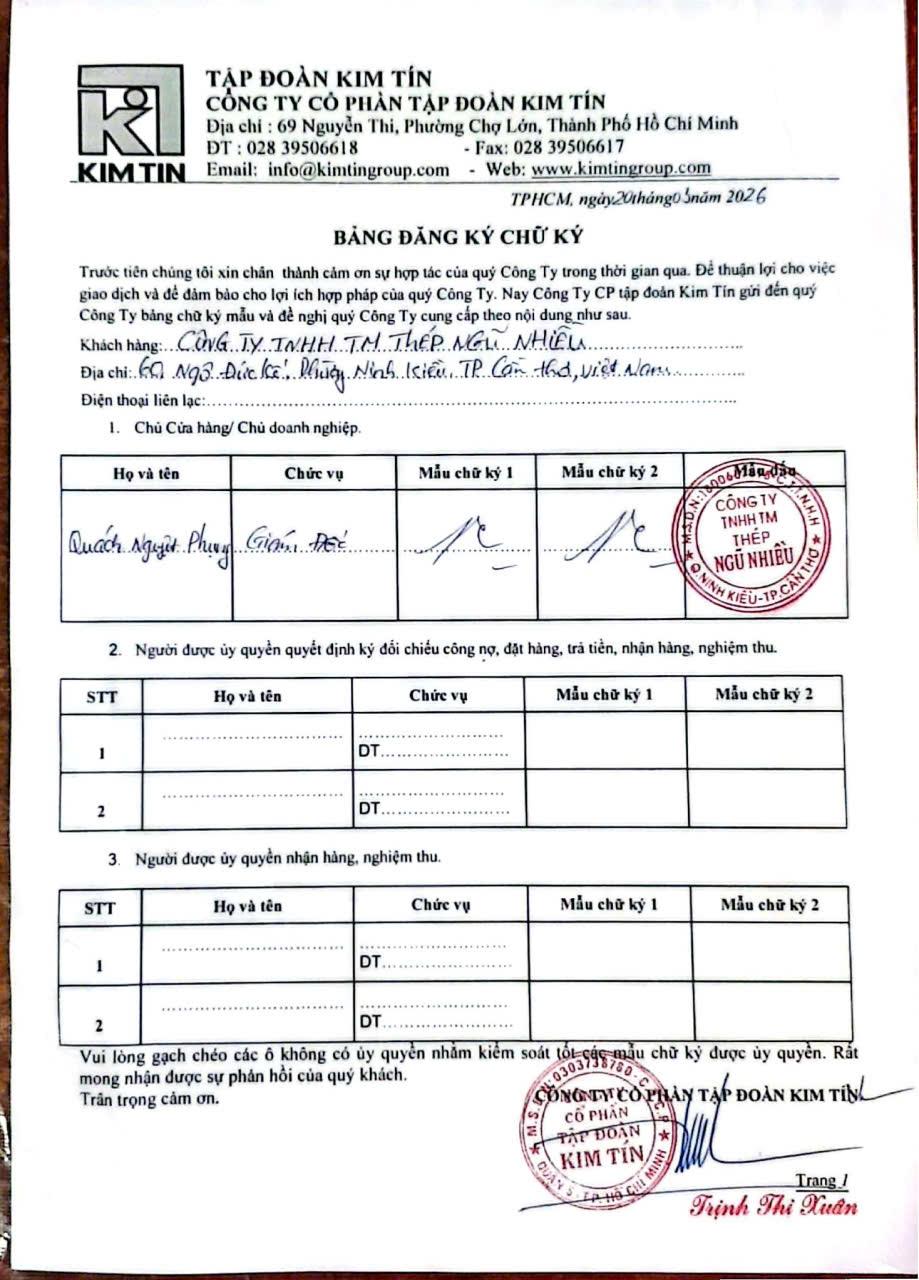 KIM TIN
TẬP ĐOÀN KIM TÍN
CÔNG TY CỔ PHẦN TẬP ĐOÀN KIM TÍN
Địa chỉ : 69 Nguyễn Thi, Phường Chợ Lớn, Thành Phố Hồ Chí Minh
ĐT : 028 39506618 - Fax: 028 39506617
Email: info@kimtingroup.com - Web: www.kimtingroup.com
TPHCM, ngày 20 tháng 03 năm 2026
BẢNG ĐĂNG KÝ CHỮ KÝ
Trước tiên chúng tôi xin chân thành cảm ơn sự hợp tác của quý Công Ty trong thời gian qua. Để thuận lợi cho việc
giao dịch và để đảm bảo cho lợi ích hợp pháp của quý Công Ty. Nay Công Ty CP tập đoàn Kim Tín gửi đến quý
Công Ty bảng chữ ký mẫu và đề nghị quý Công Ty cung cấp theo nội dung như sau.
Khách hàng: CÔNG TY TNHH TM THÉP NGŨ NHIỀU
Địa chỉ: 60 Ngô Đức Kế, Phường Ninh Kiều, TP Cần Thơ, Việt Nam
Điện thoại liên lạc:
1. Chủ Cửa hàng/ Chủ doanh nghiệp.
Họ và tên Chức vụ Mẫu chữ ký 1 Mẫu chữ ký 2 Mẫu dấu
Quách Nguyệt Phụng Giám Đốc
CÔNG TY
TNHH TM
THÉP
NGŨ NHIỀU
Q.NINH KIỀU-TP.CẦN THƠ
2. Người được ủy quyền quyết định ký đối chiếu công nợ, đặt hàng, trả tiền, nhận hàng, nghiệm thu.
STT Họ và tên Chức vụ Mẫu chữ ký 1 Mẫu chữ ký 2
1 DT
2 DT
3. Người được ủy quyền nhận hàng, nghiệm thu.
STT Họ và tên Chức vụ Mẫu chữ ký 1 Mẫu chữ ký 2
1 DT
2 DT
Vui lòng gạch chéo các ô không có ủy quyền nhằm kiểm soát tốt các mẫu chữ ký được ủy quyền. Rất
mong nhận được sự phản hồi của quý khách.
Trân trọng cảm ơn.
CÔNG TY CỔ PHẦN TẬP ĐOÀN KIM TÍN
M.S.D.N: 0303738760
CÔNG TY
CỔ PHẦN
TẬP ĐOÀN
KIM TÍN
QUẬN 5 - TP. HỒ CHÍ MINH
Trang 1
Trịnh Thị Xuân